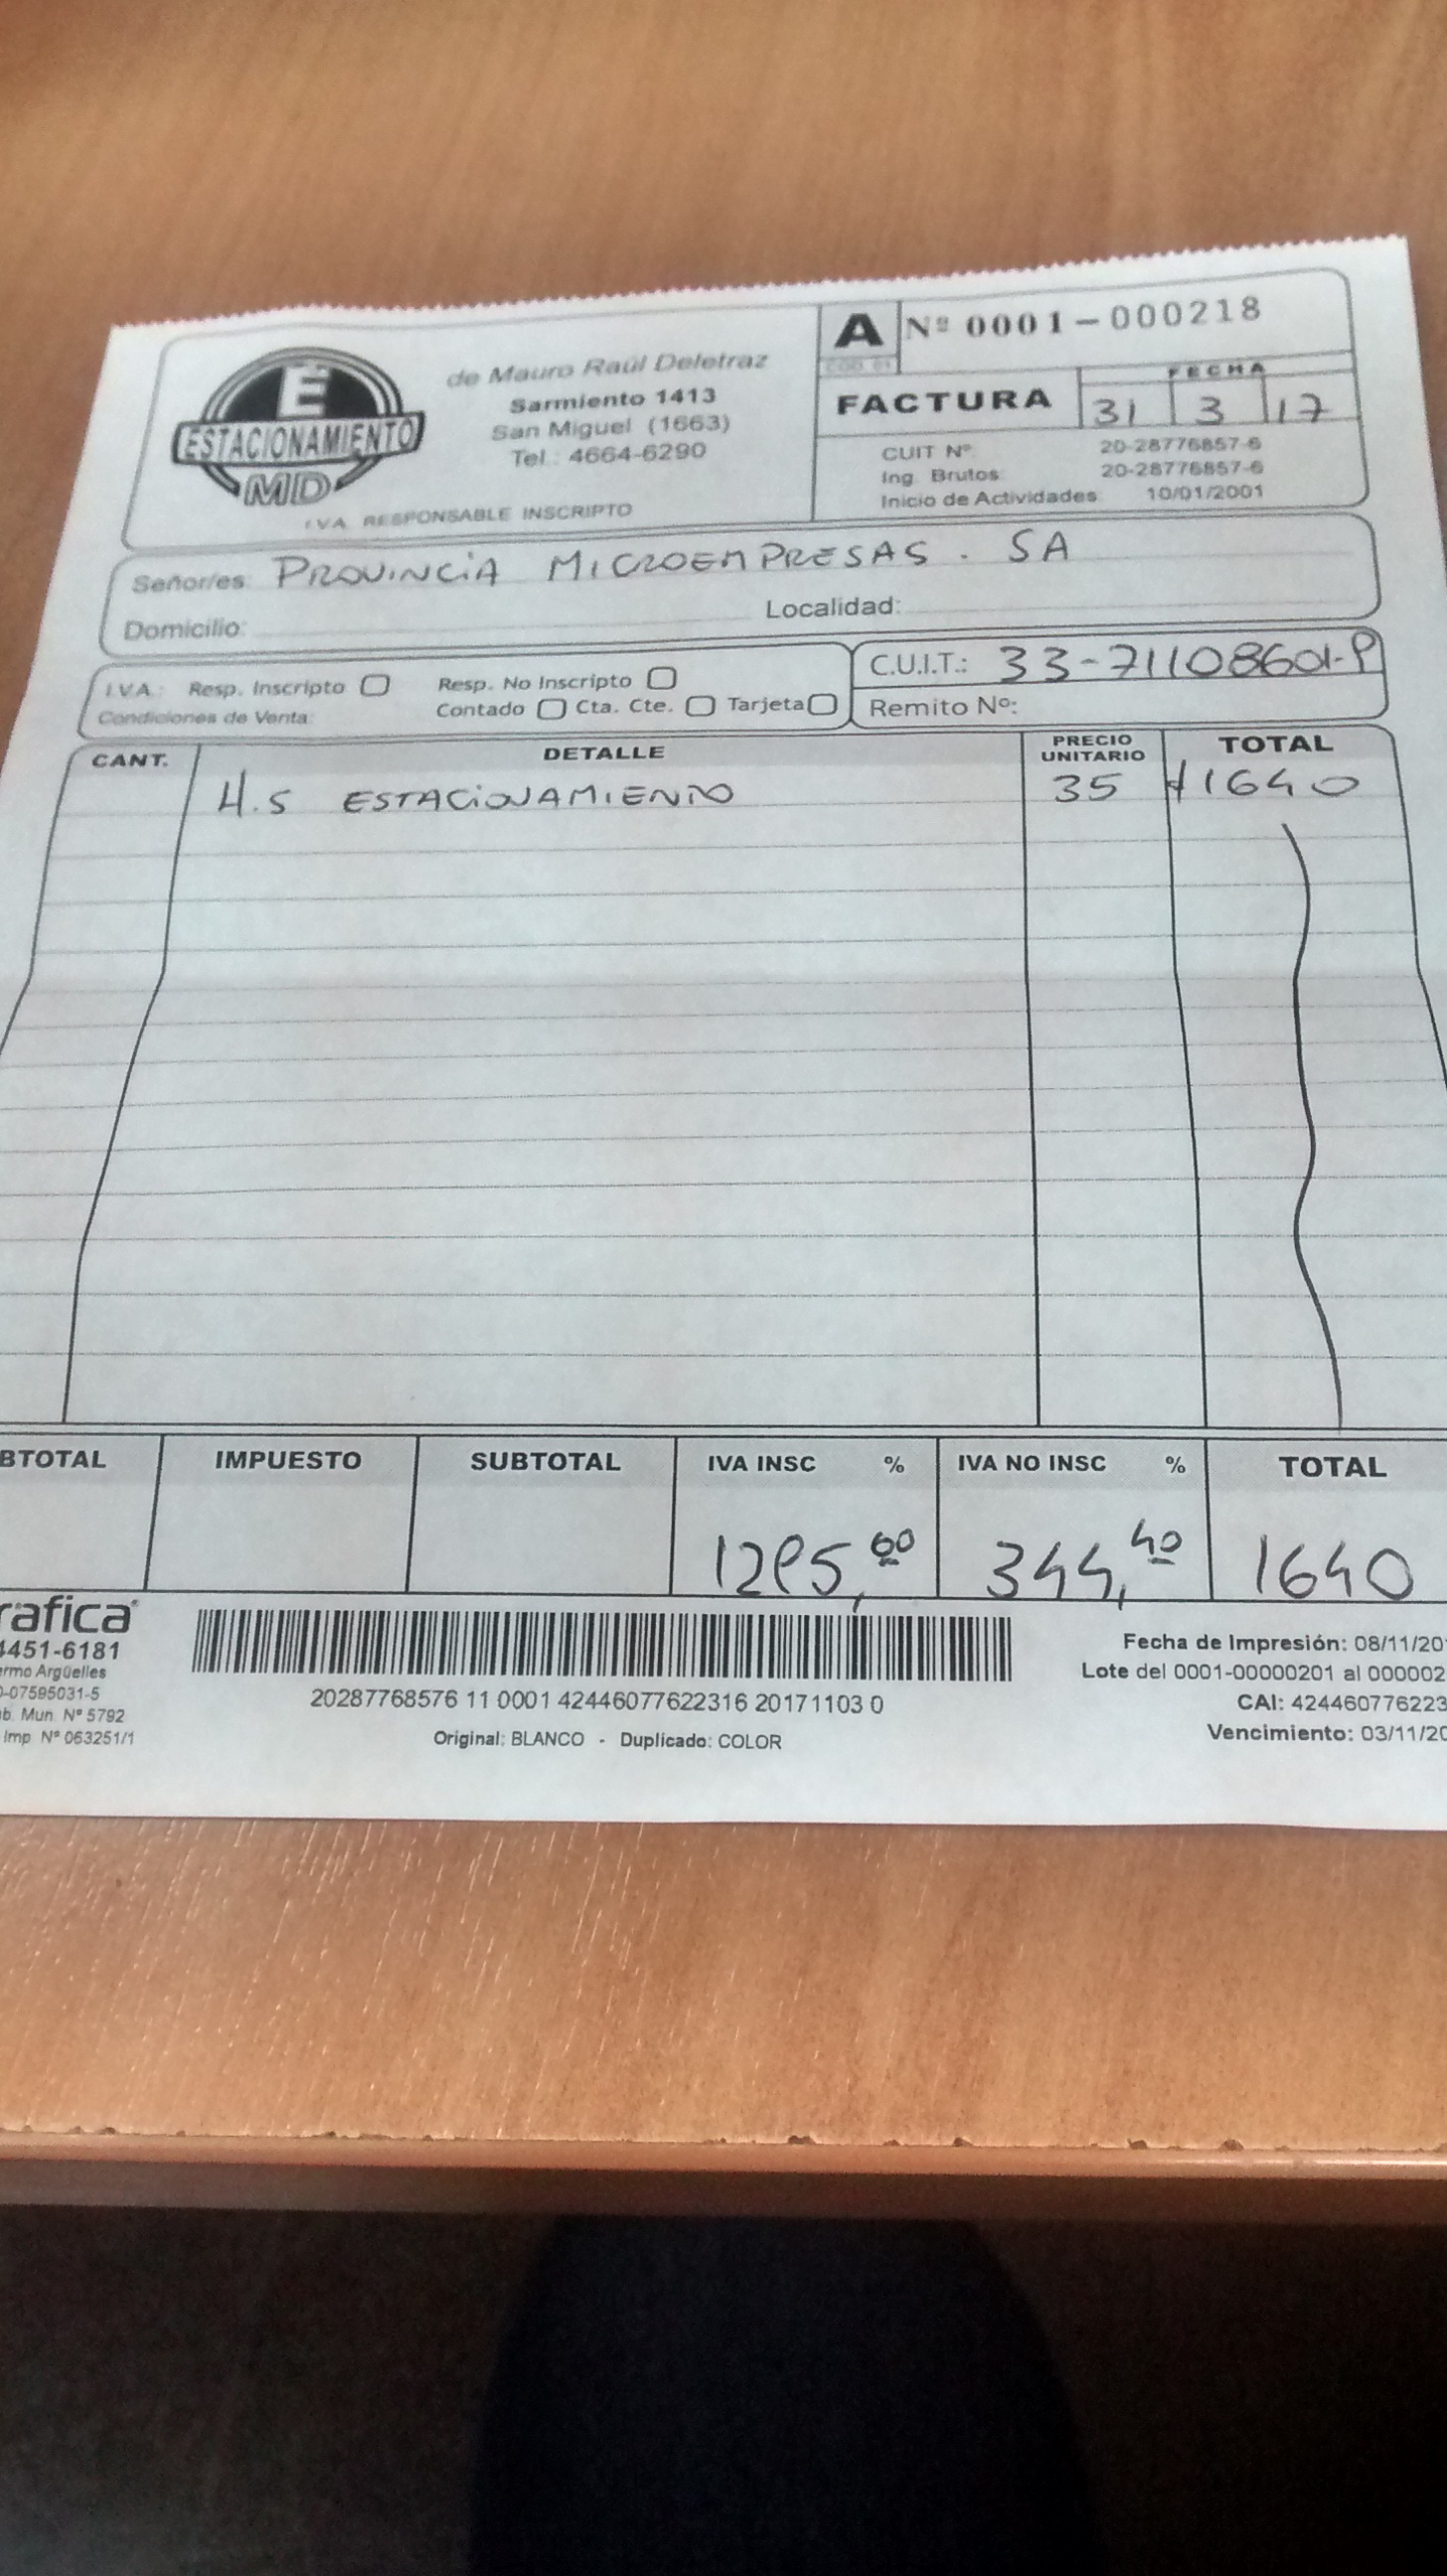 E
ESTACIONAMIENTO
MD
de Mauro Raúl Deletraz
Sarmiento 1413
San Miguel (1663)
Tel.: 4664-6290
I.V.A. RESPONSABLE INSCRIPTO
A
COD. 01
Nº 0001-000218
FACTURA
FECHA
31 3 17
CUIT Nº: 20-28776857-6
Ing. Brutos: 20-28776857-6
Inicio de Actividades: 10/01/2001
Señor/es: PROVINCIA MICROEMPRESAS. SA
Domicilio: Localidad:
I.V.A.: Resp. Inscripto Resp. No Inscripto
Condiciones de Venta: Contado Cta. Cte. Tarjeta
C.U.I.T.: 33-71108601-9
Remito Nº:
CANT. DETALLE PRECIO UNITARIO TOTAL
H.S ESTACIONAMIENTO 35 1640
BTOTAL IMPUESTO SUBTOTAL IVA INSC % IVA NO INSC % TOTAL
1295,60 344,40 1640
rafica
4451-6181
ermo Argüelles
0-07595031-5
ab. Mun. Nº 5792
Imp. Nº 063251/1
20287768576 11 0001 42446077622316 20171103 0
Original: BLANCO - Duplicado: COLOR
Fecha de Impresión: 08/11/20
Lote del 0001-00000201 al 000002
CAI: 424460776223
Vencimiento: 03/11/20